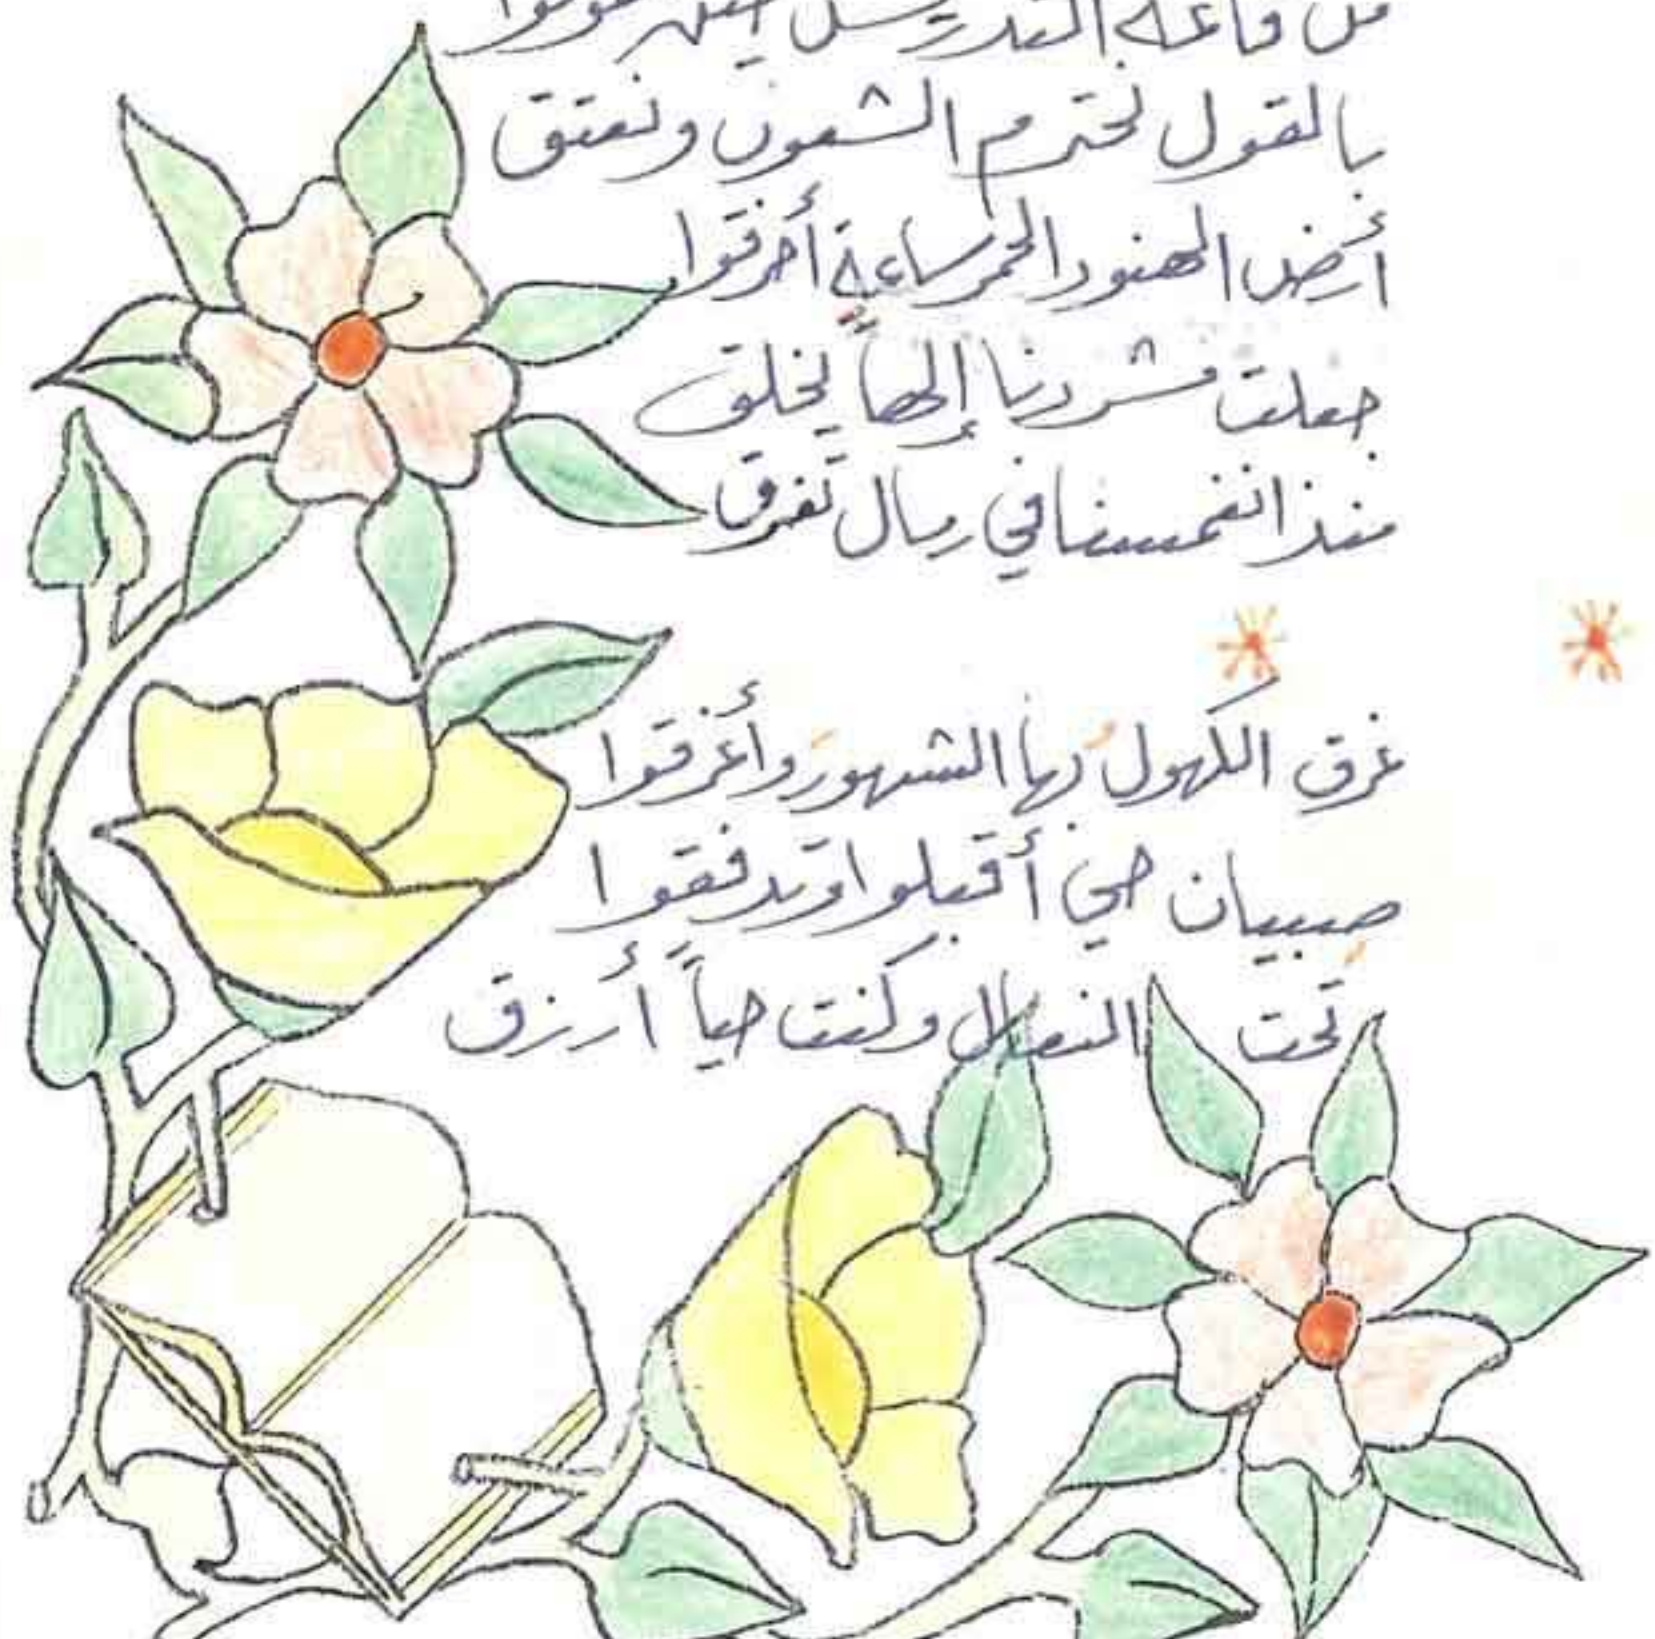 من قاعة التدريس حين تفوقوا
بالقول نحترم الشعوب ونعتق
أرض الهنود الحمر ساعة أحرقوا
جعلت تشردنا إلهاً يخلق
منذ انغمسنا في رمال تغرق
غرق الكهول بها الشهور وأغرقوا
صبيان حي أقبلوا وتدفقوا
تحت النعال وكنت حياً أرزق